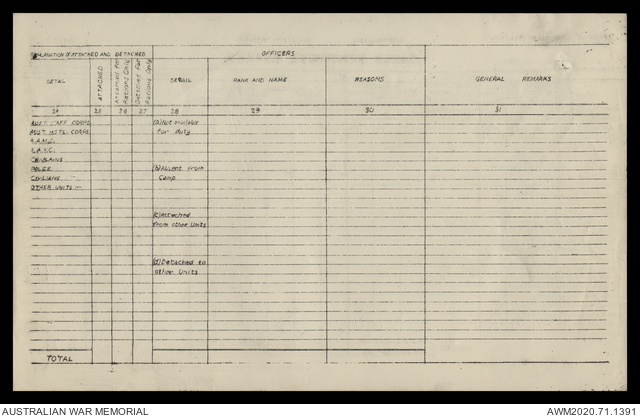 EXPLANATION OF ATTACHED AND DETACHED
OFFICERS
DETAIL
ATTACHED
Attached For Rations Only
Detached For Rations Only
DETAIL
RANK AND NAME
REASONS
GENERAL REMARKS
24
25
26
27
28
29
30
31
AUST. STAFF CORPS.
AUST. INSTL. CORPS.
A.A.M.C.
A.A.V.C.
CHAPLAINS
CIVILIANS
OTHER UNITS —
(a) Not available
for duty
(b) Absent from
Camp
(c) Attached
from other Units
(d) Detached to
other Units
TOTAL
AUSTRALIAN WAR MEMORIAL
AWM2020.71.1391